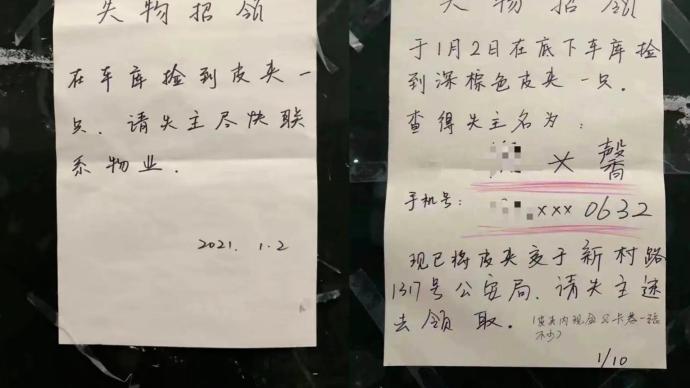 失物招领
在车库捡到皮夹一
只.请失主尽快联
系物业.
2021. 1.2
失物招领
于1月2日在底下车库捡
到深棕色皮夹一只.
查得失主名为:
× 馨
手机号: ×××0632
现已将皮夹交于新村路
1317号公安局.请失主速
去领取.(皮夹内现金及卡卷一张
不少)
1/10